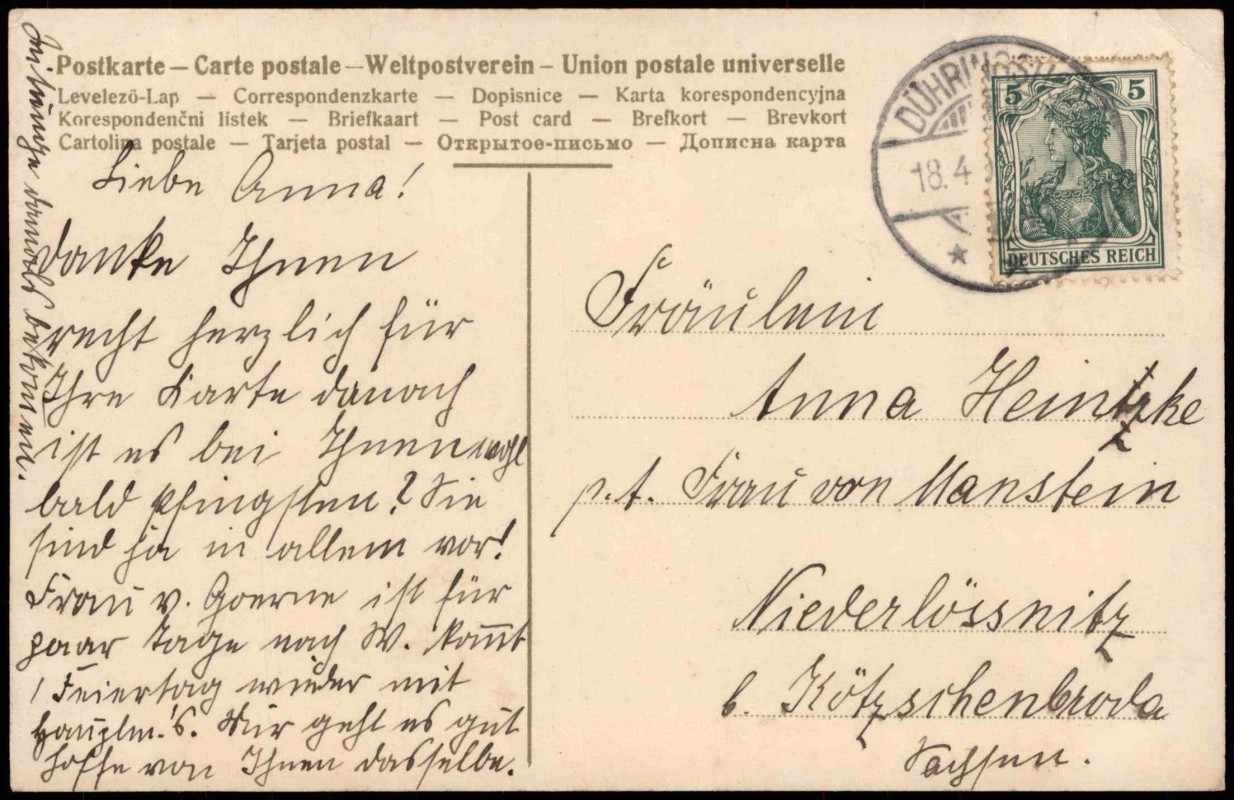 Postkarte — Carte postale — Weltpostverein — Union postale universelle
Levelezö-Lap — Correspondenzkarte — Dopisnice — Karta korespondencyjna
Korespondenčni listek — Briefkaart — Post card — Brefkort — Brevkort
Cartolina postale — Tarjeta postal — Открытое-письмо — Дописна карта
18.4
5 5
DEUTSCHES REICH
Liebe Anna!
Danke Ihnen
recht herzlich für
Ihre Karte danach
ist es bei Ihnen wohl
bald Pfingsten? Sie
sind ja in allem vor!
Frau v. Goerne ist für
paar Tage nach W. komt
1 Feiertag wieder mit
Hauptm. S. Mir geht es gut
hoffe von Ihnen dasselbe.
damals bekomen.
Fräulein
Anna Heintzke
p.t. Frau von Manstein
Niederlössnitz
b. Kötzschenbroda
Sachsen.